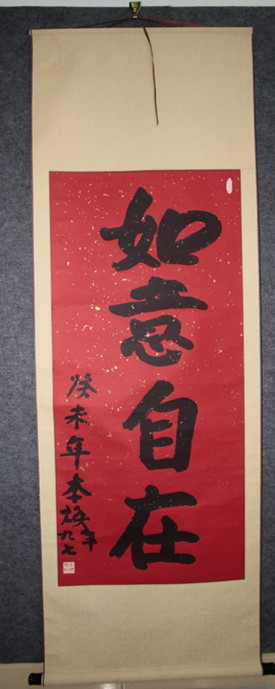 如意自在
癸未年本焕年九七